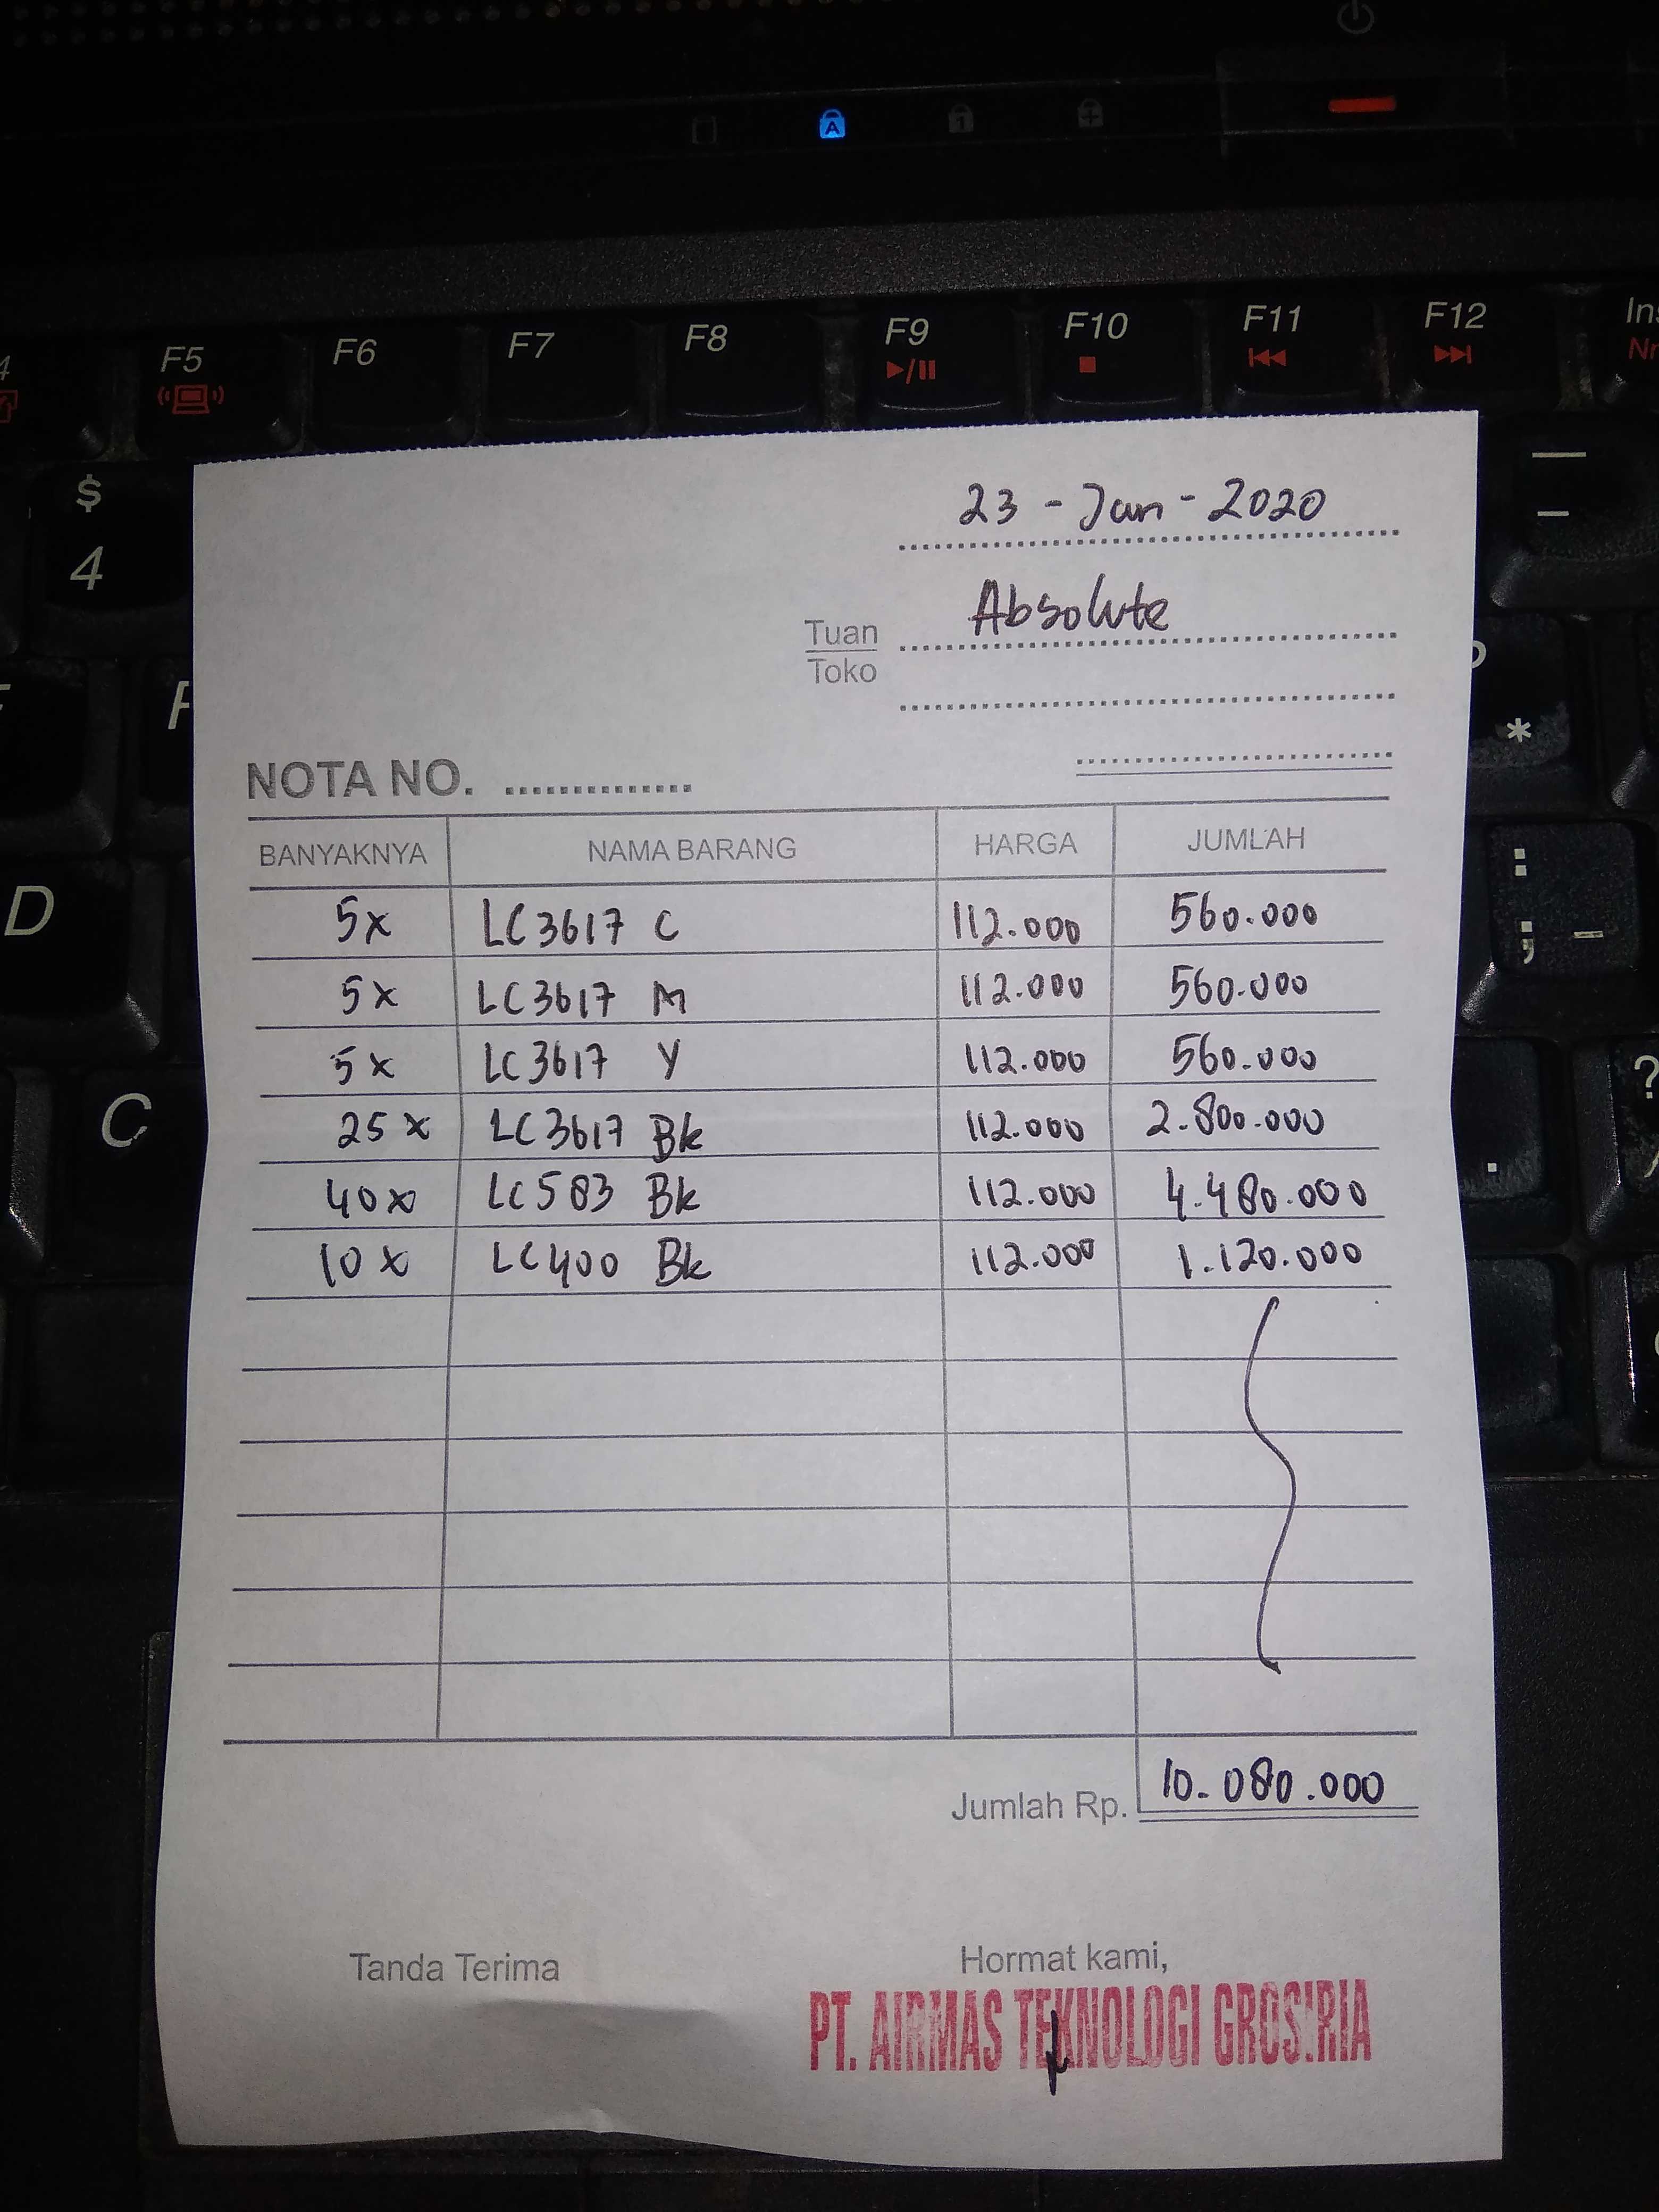 F5 F6 F7 F8 F9 F10 F11 F12 Ins
$
4
D
C
23 - Jan - 2020
Absolute
Tuan
Toko
NOTA NO. ...............
BANYAKNYA NAMA BARANG HARGA JUMLAH
5x LC3617 C 112.000 560.000
5x LC3617 M 112.000 560.000
5x LC3617 Y 112.000 560.000
25x LC3617 Bk 112.000 2.800.000
40x LC583 Bk 112.000 4.480.000
10x LC400 Bk 112.000 1.120.000
Jumlah Rp. 10.080.000
Tanda Terima Hormat kami,
PT. AIRMAS TEKNOLOGI GROSIRIA